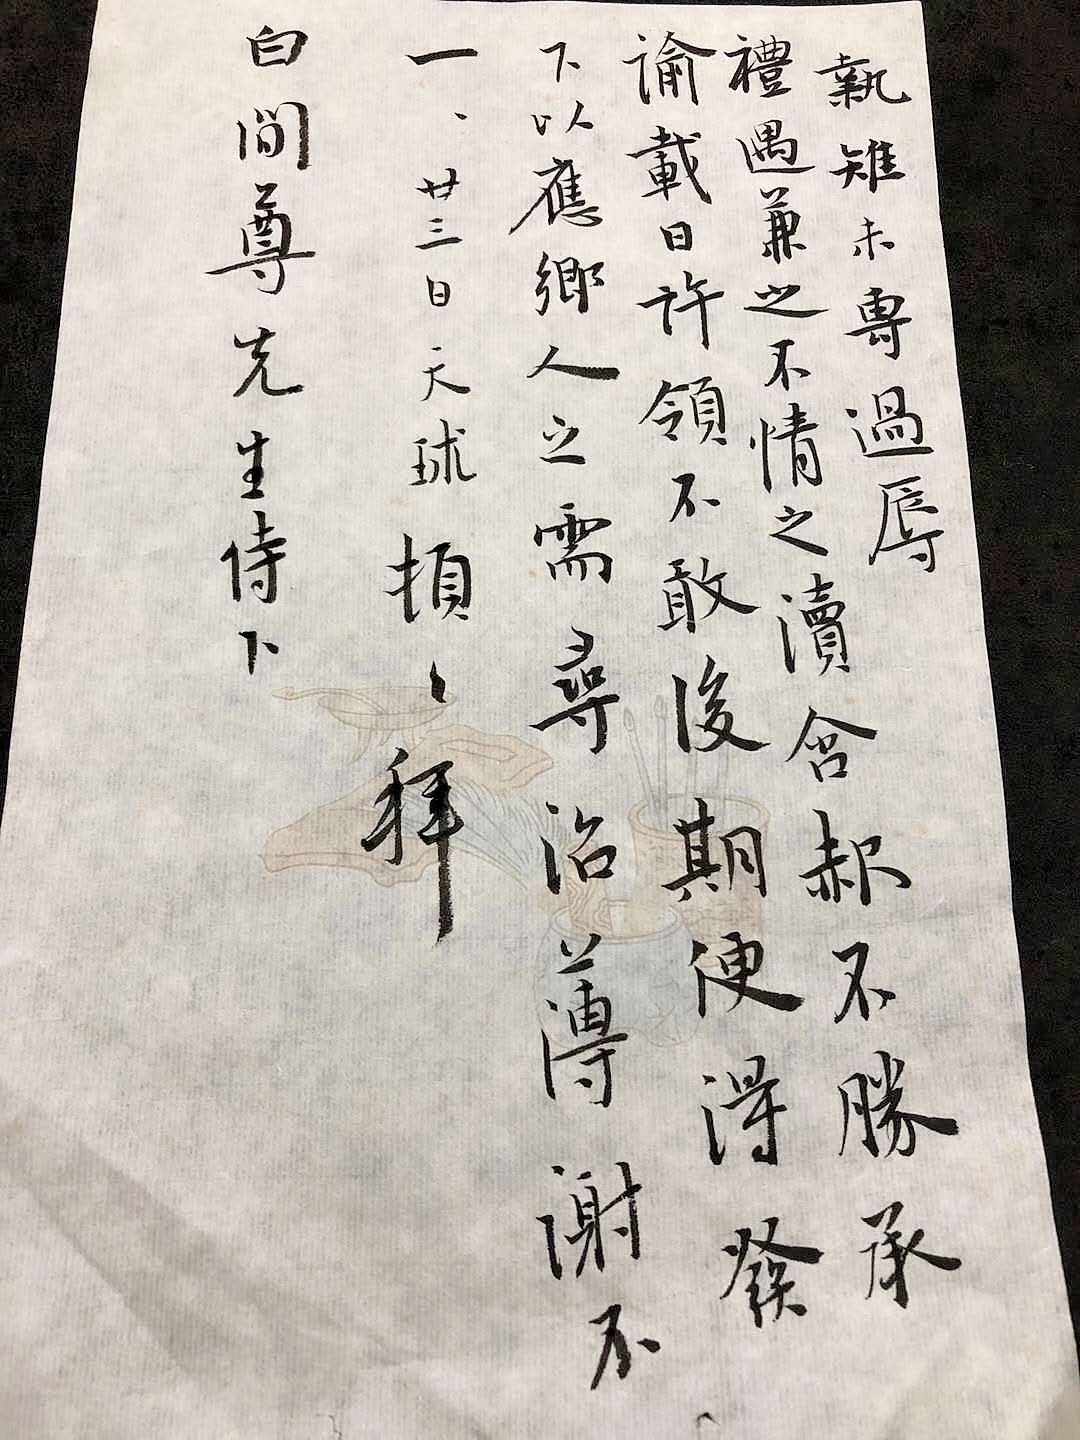 執雉未專過辱
禮遇兼之不情之瀆含赧不勝承
諭載日許領不敢後期便得發
下以應鄉人之需尋治薄謝不
一、廿三日天球頓、拜
白間尊先生侍下